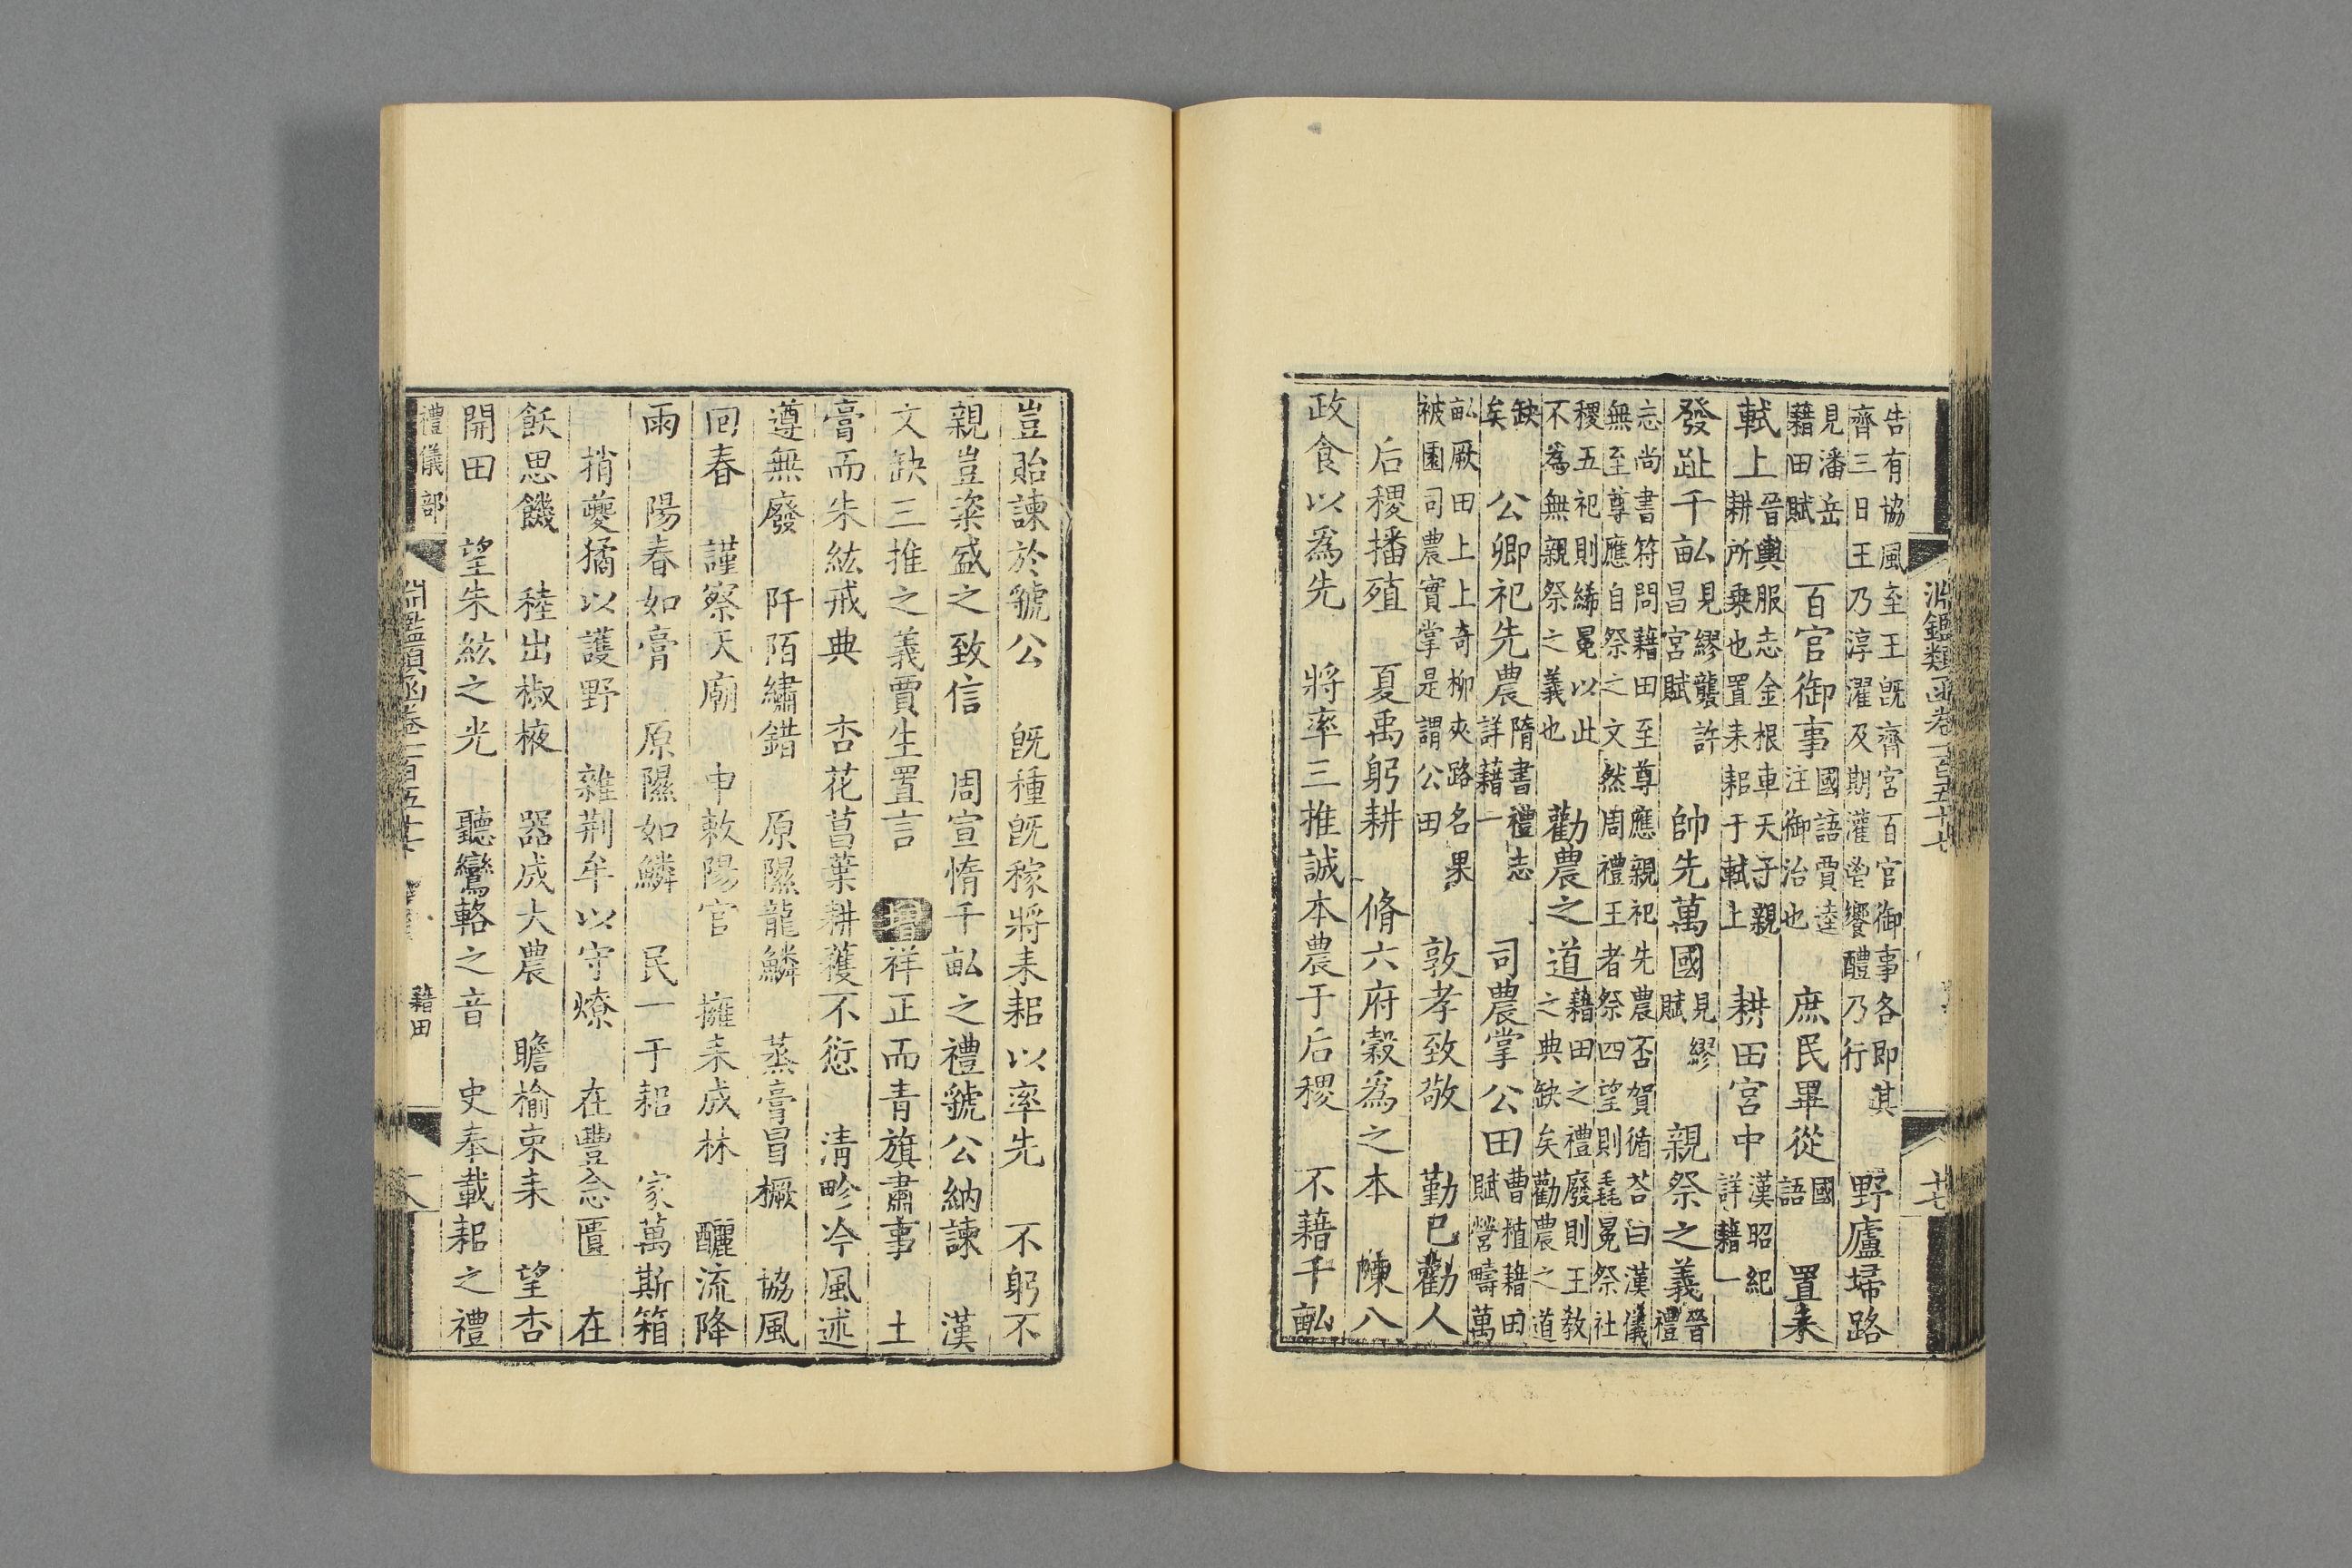 淵鑑類函卷一百五十七 十七
告有協風至王旣齊宮百官御事各卽其
齊三日王乃淳濯及期灌鬯饗醴乃行 野廬埽路
見潘岳
藉田賦 百官御事 國語賈逵
注御治也 庶民畢從 國
語 置耒
軾上 晉輿服志金根車天子親
耕所乗也置耒耜于軾上 耕田宮中 漢昭紀
詳藉一
發趾千畝 見繆襲許
昌宮賦 帥先萬國 見繆
賦 親祭之義 晉
禮
志尚書符問藉田至尊應親祀先農否賀循荅曰漢儀
無至尊應自祭之文然周禮王者祭四望則毳冕祭社
稷五祀則絺冕以此
不爲無親祭之義也 勸農之道 藉田之禮廢則王敎
之典缺矣勸農之道
缺
矣 公卿祀先農 隋書禮志
詳藉一 司農掌公田 曹植藉田
賦營疇萬
畝厥田上上奇柳夾路名果
被園司農實掌是謂公田 敦孝致敬 勤已勸人
后稷播殖 夏禹躬耕 脩六府穀爲之本 陳八
政食以爲先 將率三推誠本農于后稷 不藉千畝
豈貽諫於虢公 旣種旣稼將耒耜以率先 不躬不
親豈粢盛之致信 周宣惰千畝之禮虢公納諫 漢
文缺三推之義賈生置言 增祥正而青旗肅事 土
膏而朱紘戒典 杏花菖葉耕穫不愆 淸畛冷風述
遵無廢 阡陌繡錯 原隰龍鱗 蒸膏冒橛 協風
囘春 謹察天廟 申敕陽官 擁耒成林 釃流降
雨 陽春如膏 原隰如鱗 民一于耜 家萬斯箱
捎夔獝以護野 雜荆牟以守燎 在豐念匱 在
飫思饑 稑出椒掖 器成大農 瞻楡束耒 望杏
開田 望朱紘之光 聽鸞輅之音 史奉載耜之禮
禮儀部 淵鑑類函卷一百五十七 藉田 十八